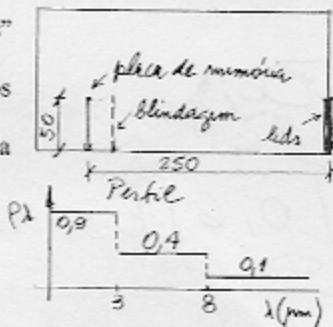 ”
placa de memória
blindagem
s
50
leds
a
250
Perfil
ρλ
0,9
0,4
0,1
3
8
λ(μm)